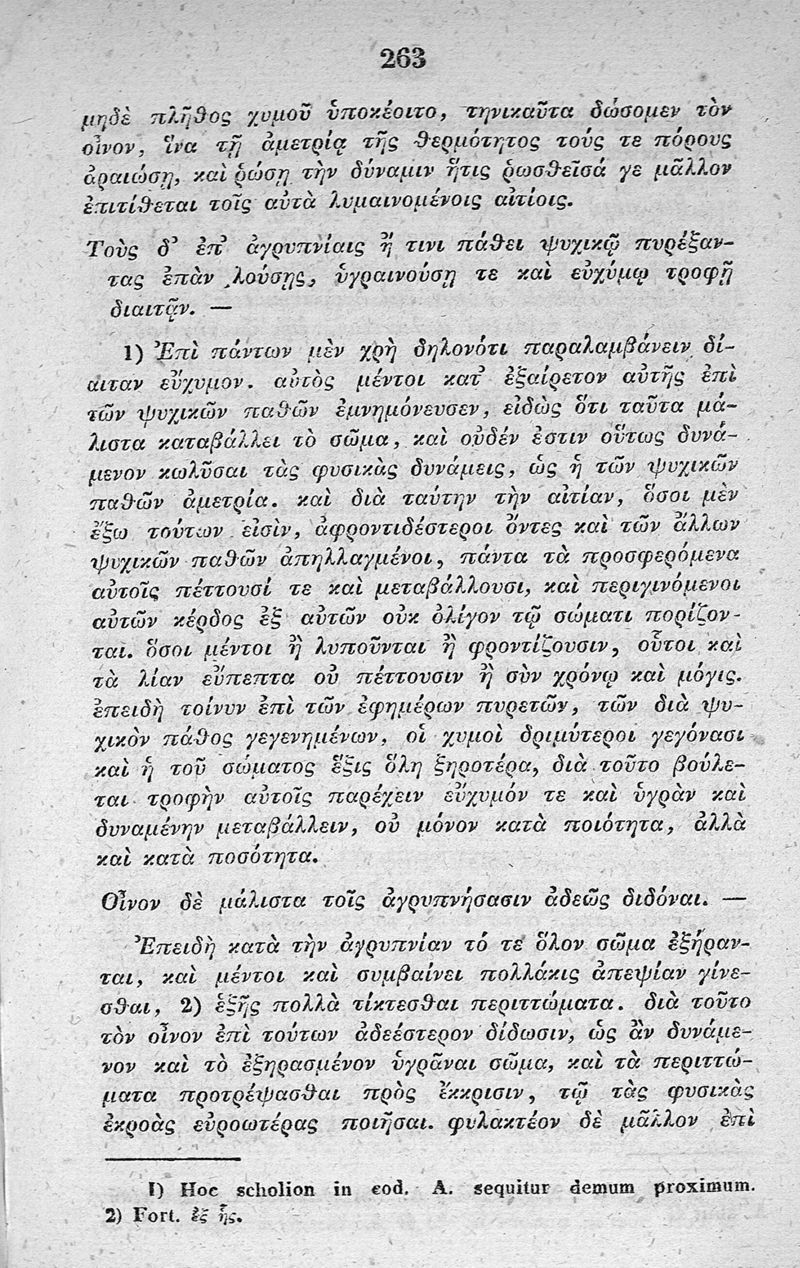 263
μηδὲ πλῆθος χυμοῦ ὑποκέοιτο, τηνικαῦτα δώσομεν τὸν
οἶνον, ἵνα τῇ ἀμετρίᾳ τῆς θερμότητος τούς τε πόρους
ἀραιώσῃ, καὶ ῥώσῃ τὴν δύναμιν ἥτις ῥωσθεῖσά γε μᾶλλον
ἐπιτίθεται τοῖς αὐτὰ λυμαινομένοις αἰτίοις.
Τοὺς δ᾽ ἐπ᾽ ἀγρυπνίαις ἤ τινι πάθει ψυχικῷ πυρέξαν-
τας ἐπὰν λούσῃς, ὑγραινούσῃ τε καὶ εὐχύμῳ τροφῇ
διαιτᾷν. —
1) Ἐπὶ πάντων μὲν χρὴ δηλονότι παραλαμβάνειν δί-
αιταν εὔχυμον. αὐτὸς μέντοι κατ᾽ ἐξαίρετον αὐτῆς ἐπὶ
τῶν ψυχικῶν παθῶν ἐμνημόνευσεν, εἰδὼς ὅτι ταῦτα μά-
λιστα καταβάλλει τὸ σῶμα, καὶ οὐδέν ἐστιν οὕτως δυνά-
μενον κωλῦσαι τὰς φυσικὰς δυνάμεις, ὡς ἡ τῶν ψυχικῶν
παθῶν ἀμετρία. καὶ διὰ ταύτην τὴν αἰτίαν, ὅσοι μὲν
ἔξω τούτων εἰσὶν, ἀφροντιδέστεροι ὄντες καὶ τῶν ἄλλων
ψυχικῶν παθῶν ἀπηλλαγμένοι, πάντα τὰ προσφερόμενα
αὐτοῖς πέττουσί τε καὶ μεταβάλλουσι, καὶ περιγινόμενοι
αὐτῶν κέρδος ἐξ αὐτῶν οὐκ ὀλίγον τῷ σώματι πορίζον-
ται. ὅσοι μέντοι ἢ λυποῦνται ἢ φροντίζουσιν, οὗτοι καὶ
τὰ λίαν εὔπεπτα οὐ πέττουσιν ἢ σὺν χρόνῳ καὶ μόγις.
ἐπειδὴ τοίνυν ἐπὶ τῶν ἐφημέρων πυρετῶν, τῶν διὰ ψυ-
χικὸν πάθος γεγενημένων, οἱ χυμοὶ δριμύτεροι γεγόνασι
καὶ ἡ τοῦ σώματος ἕξις ὅλη ξηροτέρα, διὰ τοῦτο βούλε-
ται τροφὴν αὐτοῖς παρέχειν εὔχυμόν τε καὶ ὑγρὰν καὶ
δυναμένην μεταβάλλειν, οὐ μόνον κατὰ ποιότητα, ἀλλὰ
καὶ κατὰ ποσότητα.
Οἶνον δὲ μάλιστα τοῖς ἀγρυπνήσασιν ἀδεῶς διδόναι. —
Ἐπειδὴ κατὰ τὴν ἀγρυπνίαν τό τε ὅλον σῶμα ἐξήραν-
ται, καὶ μέντοι καὶ συμβαίνει πολλάκις ἀπεψίαν γίνε-
σθαι, 2) ἑξῆς πολλὰ τίκτεσθαι περιττώματα. διὰ τοῦτο
τὸν οἶνον ἐπὶ τούτων ἀδεέστερον δίδωσιν, ὡς ἂν δυνάμε-
νον καὶ τὸ ἐξηρασμένον ὑγρᾶναι σῶμα, καὶ τὰ περιττώ-
ματα προτρέψασθαι πρὸς ἔκκρισιν, τῷ τὰς φυσικὰς
ἐκροὰς εὐροωτέρας ποιῆσαι. φυλακτέον δὲ μᾶλλον ἐπὶ
1) Hoc scholion in cod. A. sequitur demum proximum.
2) Fort. ἐξ ἧς.